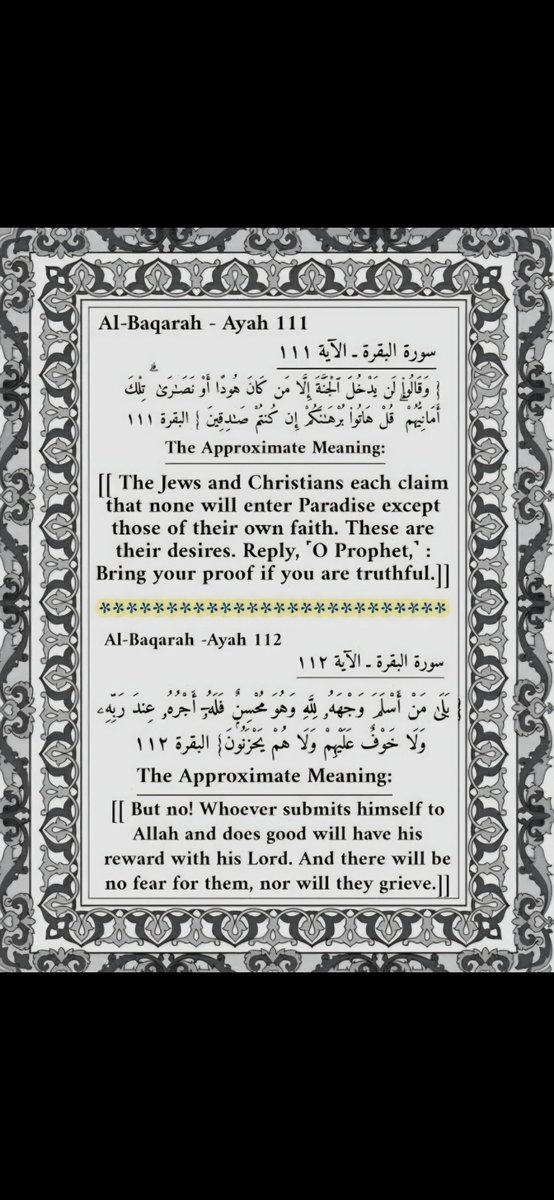 Al-Baqarah - Ayah 111
سورة البقرة ـ الآية ١١١
{ وَقَالُوا۟ لَن يَدْخُلَ ٱلْجَنَّةَ إِلَّا مَن كَانَ هُودًا أَوْ نَصَـٰرَىٰ ۗ تِلْكَ
أَمَانِيُّهُمْ ۗ قُلْ هَاتُوا۟ بُرْهَـٰنَكُمْ إِن كُنتُمْ صَـٰدِقِينَ } البقرة ١١١
The Approximate Meaning:
[[ The Jews and Christians each claim
that none will enter Paradise except
those of their own faith. These are
their desires. Reply, ˹O Prophet,˺ :
Bring your proof if you are truthful.]]
***************************
Al-Baqarah -Ayah 112
سورة البقرة ـ الآية ١١٢
{ بَلَىٰ مَنْ أَسْلَمَ وَجْهَهُۥ لِلَّهِ وَهُوَ مُحْسِنٌ فَلَهُۥٓ أَجْرُهُۥ عِندَ رَبِّهِۦ
وَلَا خَوْفٌ عَلَيْهِمْ وَلَا هُمْ يَحْزَنُونَ} البقرة ١١٢
The Approximate Meaning:
[[ But no! Whoever submits himself to
Allah and does good will have his
reward with his Lord. And there will be
no fear for them, nor will they grieve.]]